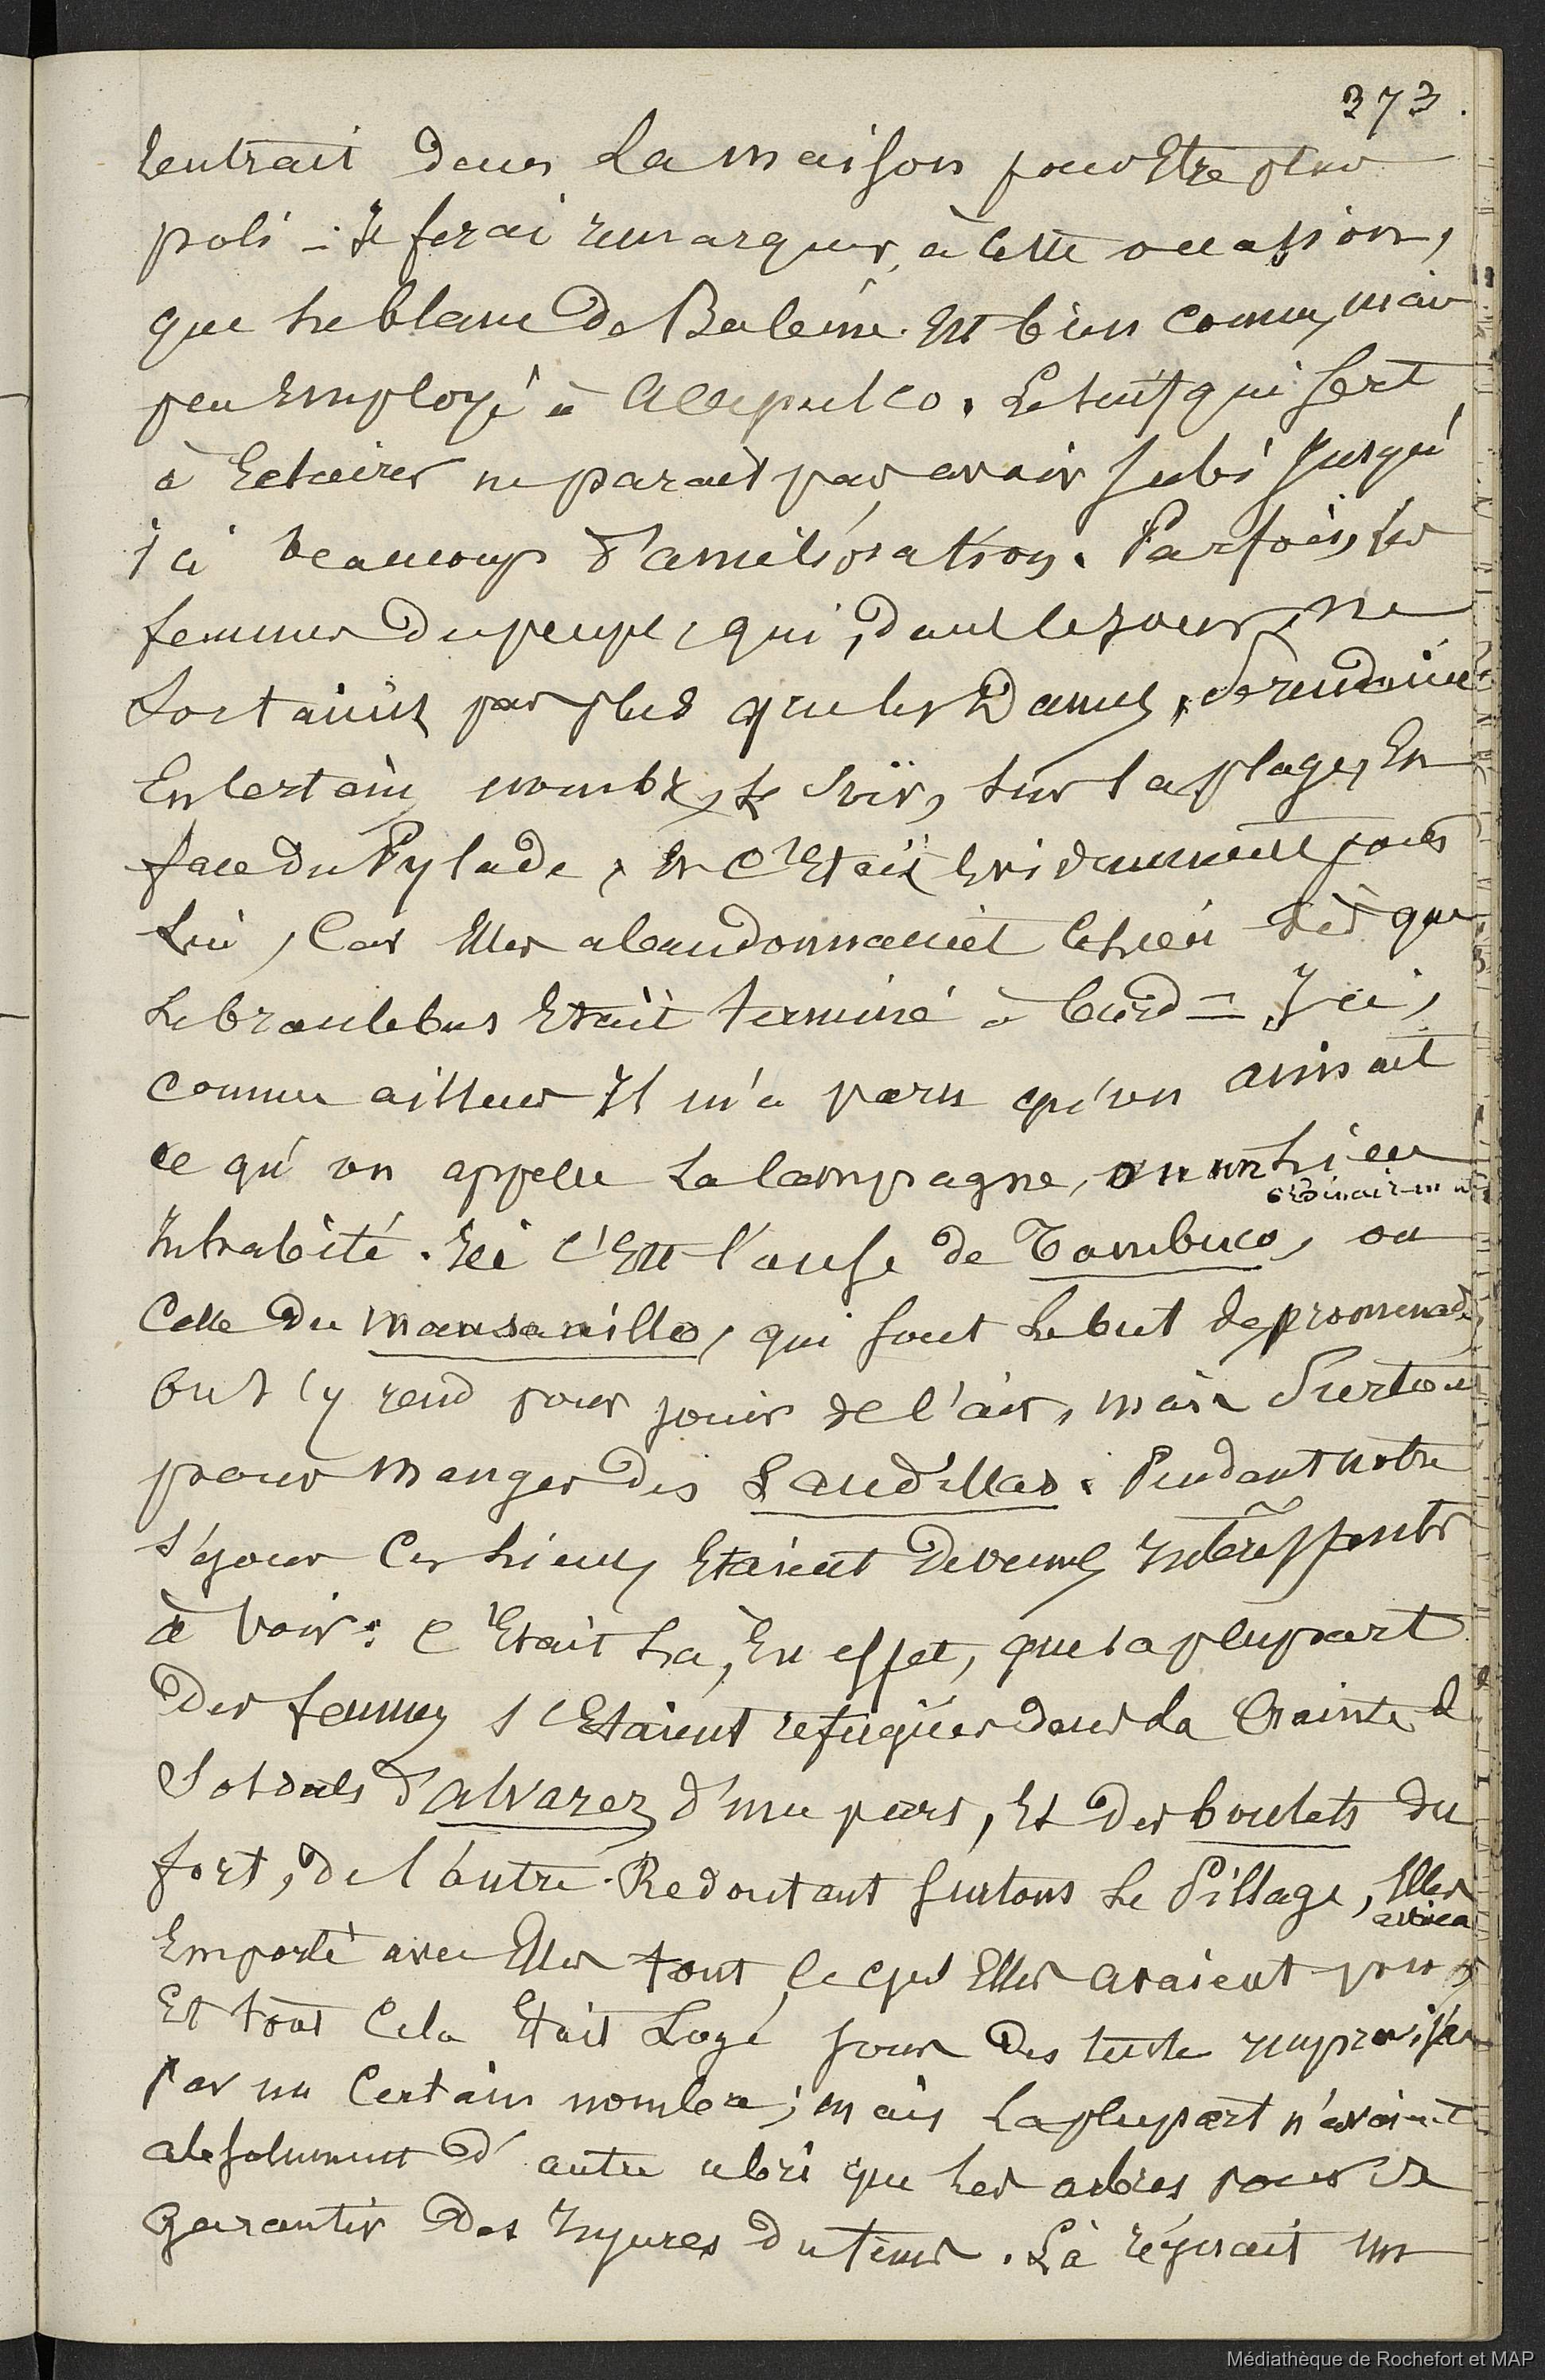 373.
rentrait dans la maison pour être plus
poli - Je ferai remarquer, à cette occasion,
que le blanc de Baleine est bien connu, mais
peu employé à Acapulco. Le suif qui sert
à Eclairer ne parait pas avoir subi Jusqu'
ici beaucoup d'amélioration. Parfois, les
femmes du peuple, qui, dans le jour, ne
sortaient pas plus que les Dames, se rendaient
En certain nombre, le soir, sur la plage, En
face du Pylade, Et C'Etait Evidemment pour
lui, Car Elles abandonnaient ce lieu dès que
le branlebas Etait terminé à bord = Ici,
comme ailleurs Il m'a paru qu'on aimait
ce qu'on appelle la Campagne, ou un lieu
ordinairement
Inhabité. Ici C'Est l'anse de Tambuco, ou
Celle du mansanillo, qui sont le but de promenade
On s'y rend pour jouir de l'air, mais Surtout
pour manger des Sandillas. Pendant notre
séjour Ces lieux Etaient devenus Intéressants
à voir: C'Etait là, En effet, que la plupart
Des femmes s'Etaient refugiées dans la Crainte de
Soldats d'Alvarez d'une part, Et des boulets du
fort, de l'autre. Redoutant surtout le Pillage, Elles
avaient
Emporté avec Elles tout ce qu'Elles avaient pu,
Et tout Cela Etait Logé sous des tentes improvisées
Par un Certain nombre; mais la plupart n'avaient
absolument d'autre abri que les arbres pour se
Garantir des Injures du tems. Là régnait un
Médiathèque de Rochefort et MAP